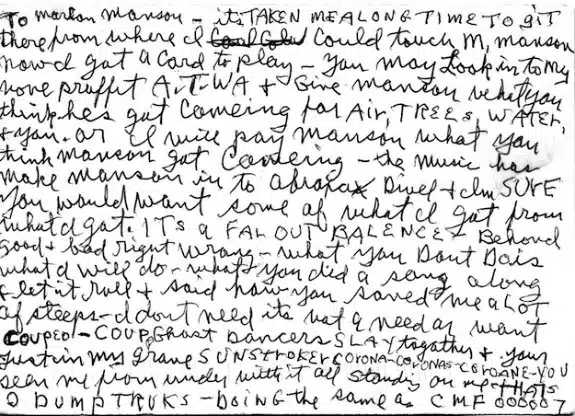 To marlon manson – its TAKEN ME A LONG TIME TO git
there from where I could touch M, manson
now I got a card to play – You may Look in to my
none proffit A.T.WA & Give manson what you
think he's got comeing for Air, TREES, WATER,
& you. or I will pay manson what you
think manson got comeing – the music has
make manson in to abraxas Divel & I'm SURE
you would want some of what I got from
what I got. ITS a FAR OUT BALENCE & Behond
good & bad right wrong – what you Dont Do is
what I will do – what you did a song along
& let it roll & said how you saved me a Lot
of steeps – I dont need it its not a need or want
COUPED – COUP, Ghost Dancers SLAY together & your
just in my grave SUNSTROKER CORONA-CORONAS-COROANE-YOU
seen me from under with it all standing on me THATS
2 DUMP TRUKS – DOING the same as CMF 000007